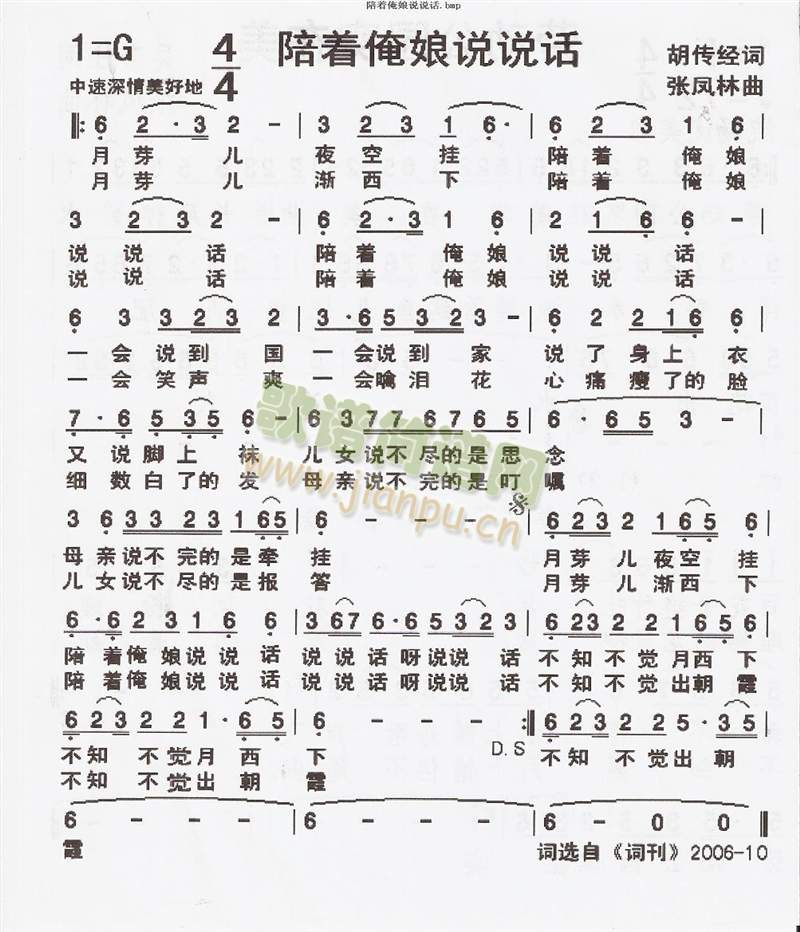 陪着俺娘说说话.bmp
1=G 4/4 陪着俺娘说说话 胡传经词
中速深情美好地 张凤林曲
𝄆 6 2·3 2 - | 3 2 3 1 6· | 6 2 3 1 6 |
月芽儿 夜空挂 陪着俺娘
月芽儿 渐西下 陪着俺娘
3 2 3 2 - | 6 2·3 1 6 | 2 1 6 6 - |
说说话 陪着俺娘 说说话
说说话 陪着俺娘 说说话
6 3 3 2 3 2 | 3·5 2 3 3 - | 6 2 2 1 6 6 |
一会说到国 一会说到家 说了身上衣
一会笑声爽 一会噙泪花 心痛瘦了的脸
7·6 5 3 5 6 - | 6 3 7 7 6 7 6 5 | 6· 6 5 3 - |
又说脚上袜 儿女说不尽的是思念
细数白了的发 母亲说不完的是叮嘱
3 6 3 3 2 3 1 6 5 | 6 - - - | 6 2 3 2 1 6 5 6 |
母亲说不完的是牵挂 月芽儿夜空挂
儿女说不尽的是报答 月芽儿渐西下
6·6 2 3 1 6 6 | 3 6 7 6·6 5 3 2 3 | 6 2 3 2 2 1 6 5 6 |
陪着俺娘说说话 说说话呀说说话 不知不觉月西下
陪着俺娘说说话 说说话呀说说话 不知不觉出朝霞
6 2 3 2 2 1· 6 5 | 6 - - - 𝄇 6 2 3 2 2 5· 3 5 |
D.S
不知不觉月西下 不知不觉出朝
不知不觉出朝霞
6 - - - | 6 - - - | 6 - 0 0 ‖
霞 词选自《词刊》2006-10
歌谱简谱网
www.jianpu.cn